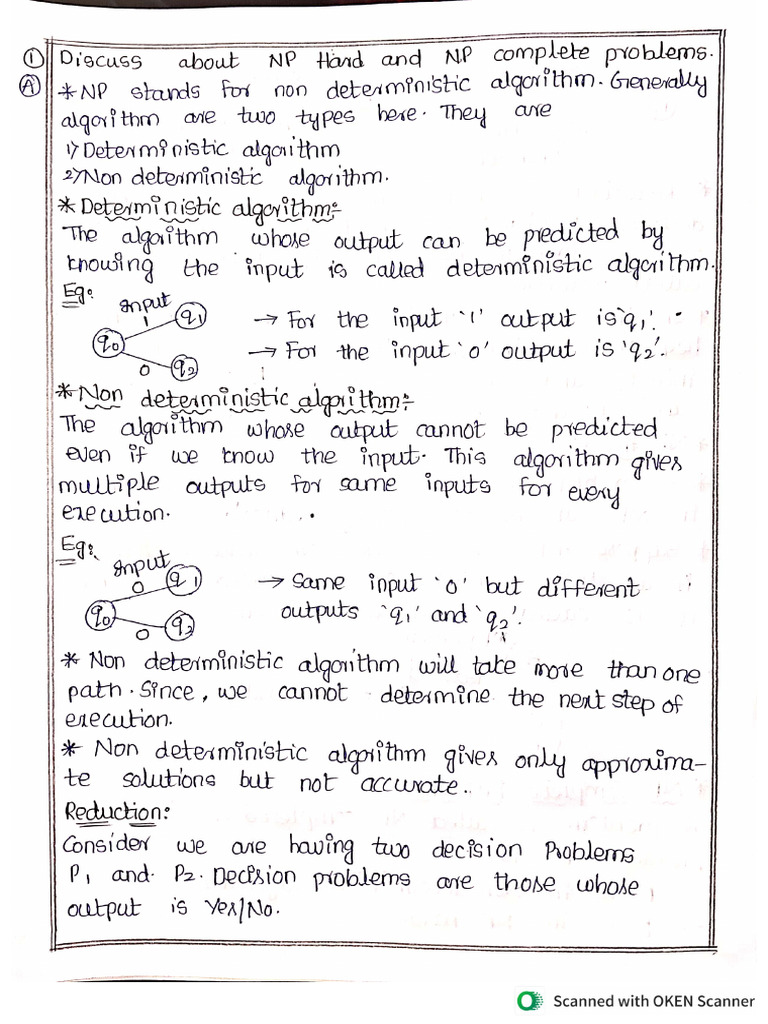 ① Discuss about NP Hard and NP complete problems.
Ⓐ * NP stands for non deterministic algorithm. Generally
algorithm are two types here. They are
1) Deterministic algorithm
2) Non deterministic algorithm.
* Deterministic algorithm:-
The algorithm whose output can be predicted by
knowing the input is called deterministic algorithm.
Eg:
input
1 q1 → For the input '1' output is 'q1'.
q0
0 q2 → For the input '0' output is 'q2'.
* Non deterministic algorithm:-
The algorithm whose output cannot be predicted
even if we know the input. This algorithm gives
multiple outputs for same inputs for every
execution.
Eg:
input
0 q1 → Same input '0' but different
q0 outputs 'q1' and 'q2'.
0 q2
* Non deterministic algorithm will take more than one
path. Since, we cannot determine the next step of
execution.
* Non deterministic algorithm gives only approxima-
te solutions but not accurate.
Reduction:
Consider we are having two decision Problems
P1 and P2. Decision problems are those whose
output is Yes/No.
Scanned with OKEN Scanner